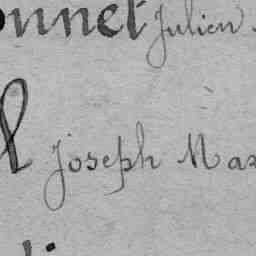 onnet Julien
l Joseph Max